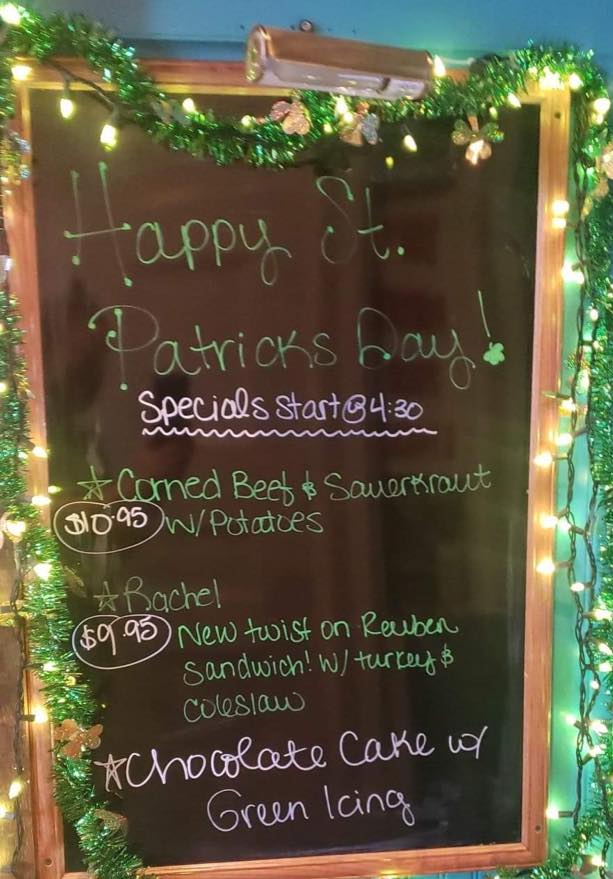 Happy St.
Patricks Day!
Specials Start@4:30
☆ Corned Beef & Sauerkraut
$10.95 W/Potatoes
☆ Rachel
$9.95 New twist on Reuben
Sandwich! W/ turkey &
coleslaw
☆ Chocolate Cake w/
Green Icing